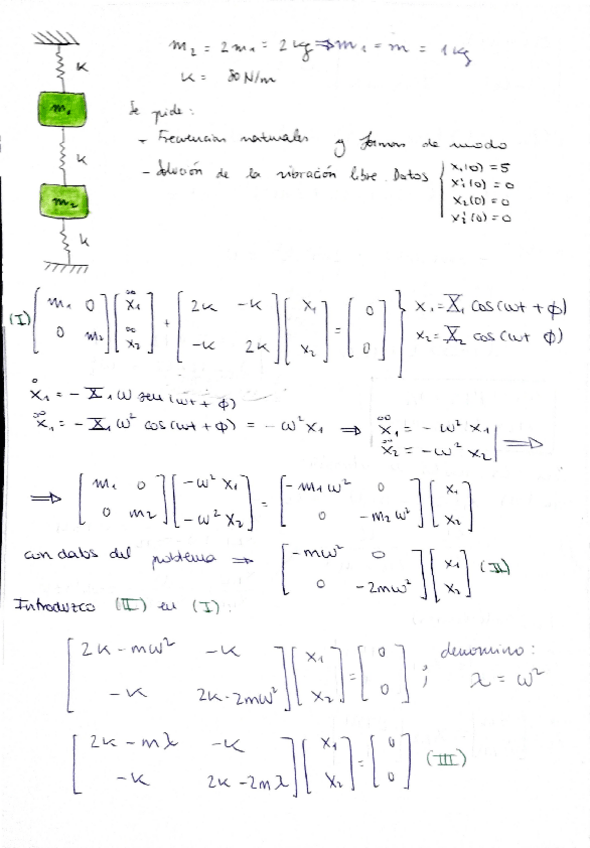 m₂ = 2m₁ = 2kg ⇒ m₁ = m = 1kg
K
K = 80 N/m
m₁
Se pide:
K
+ Frecuencias naturales y formas de modo
- Solución de la vibración libre. Datos { x₁(0) = 5
ẋ₁(0) = 0
x₂(0) = 0
ẋ₂(0) = 0
m₂
K
(I) [m₁ 0; 0 m₂] [ẍ₁; ẍ₂] + [2K -K; -K 2K] [x₁; x₂] = [0; 0] } x₁ = X₁ cos(ωt + ϕ)
x₂ = X₂ cos(ωt ϕ)
ẋ₁ = - X₁ ω sen(ωt + ϕ)
ẍ₁ = - X₁ ω² cos(ωt + ϕ) = - ω² x₁ ⇒ ẍ₁ = - ω² x₁
ẍ₂ = - ω² x₂ ⇒
⇒ [m₁ 0; 0 m₂] [-ω² x₁; -ω² x₂] = [-m₁ω² 0; 0 -m₂ω²] [x₁; x₂]
con datos del problema ⇒ [-mω² 0; 0 -2mω²] [x₁; x₂] (II)
Introduzco (II) en (I):
[2K - mω² -K; -K 2K - 2mω²] [x₁; x₂] = [0; 0] ; denomino:
λ = ω²
[2K - mλ -K; -K 2K - 2mλ] [x₁; x₂] = [0; 0] (III)